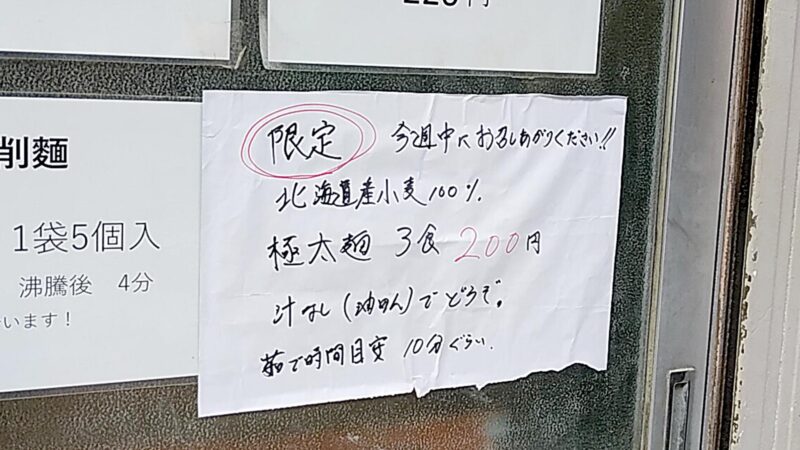 削麺
1袋5個入
沸騰後 4分
います!
限定 今週中にお召しあがりください!!
北海道産小麦100%.
極太麺 3食 200円
汁なし(油めん)でどうぞ。
茹で時間目安 10分ぐらい.